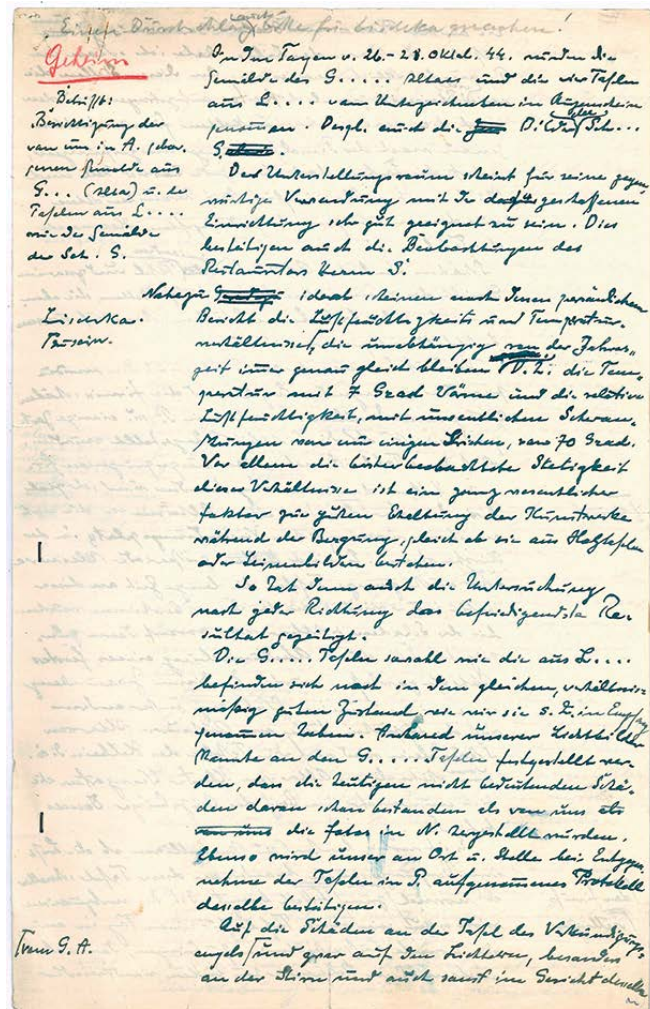 Geheim
Betrifft:
Besichtigung der
von uns in A. gebor-
genen Gemälde aus
G... (Altar) u. der
Tafeln aus L....
wie der Gemälde
der Sch. G.
In den Tagen v. 26.-28. Oktob. 44. wurden die
Gemälde des G..... Altars und die vier Tafeln
aus L.... vom Unterzeichneten in Augenschein
genommen. Desgl. auch die Bilder Sch...
G.
Der Unterstellungsraum scheint für seine gegen-
wärtige Verwendung mit der dafür geschaffenen
Einrichtung sehr gut geeignet zu sein. Dies
bestätigen auch die Beobachtungen des
Restaurators Herrn S.
Nahezu ideal scheinen nach dessen persönlichem
Bericht die Luftfeuchtigkeits und Temperatur-
verhältnisse, die unabhängig von der Jahres-
zeit immer genau gleich bleiben. D. i.: die Tem-
peratur mit 7 Grad Wärme und die relative
Luftfeuchtigkeit, mit unwesentlichen Schwan-
kungen von nur einigen Strichen, von 70 Grad.
Vor allem die bisher beobachtete Stetigkeit
dieser Verhältnisse ist ein ganz wesentlicher
Faktor zur guten Erhaltung der Kunstwerke
während der Bergung, gleich ob sie aus Holztafeln
oder Leinenbildern bestehen.
So hat denn auch die Untersuchung
nach jeder Richtung das befriedigendste Re-
sultat gezeitigt.
Die G..... Tafeln sowohl wie die aus L....
befinden sich noch in dem gleichen, verhältnis-
mäßig guten Zustand, wie wir sie s. Z. in Empfang
genommen haben. Anhand unserer Lichtbilder
konnte an den G..... Tafeln festgestellt wer-
den, dass die heutigen nicht bedeutenden Schä-
den daran schon bestanden als von uns
die Fotos in N. hergestellt wurden.
Ebenso wird unser an Ort u. Stelle bei Entgegen-
nahme der Tafeln in P. aufgenommenes Protokoll
dasselbe bestätigen.
Auf die Schäden an der Tafel des Verkündigungs-
engels (und zwar auf den Lichtern, besonders
an der Stirn und auch sonst im Gesicht desselben